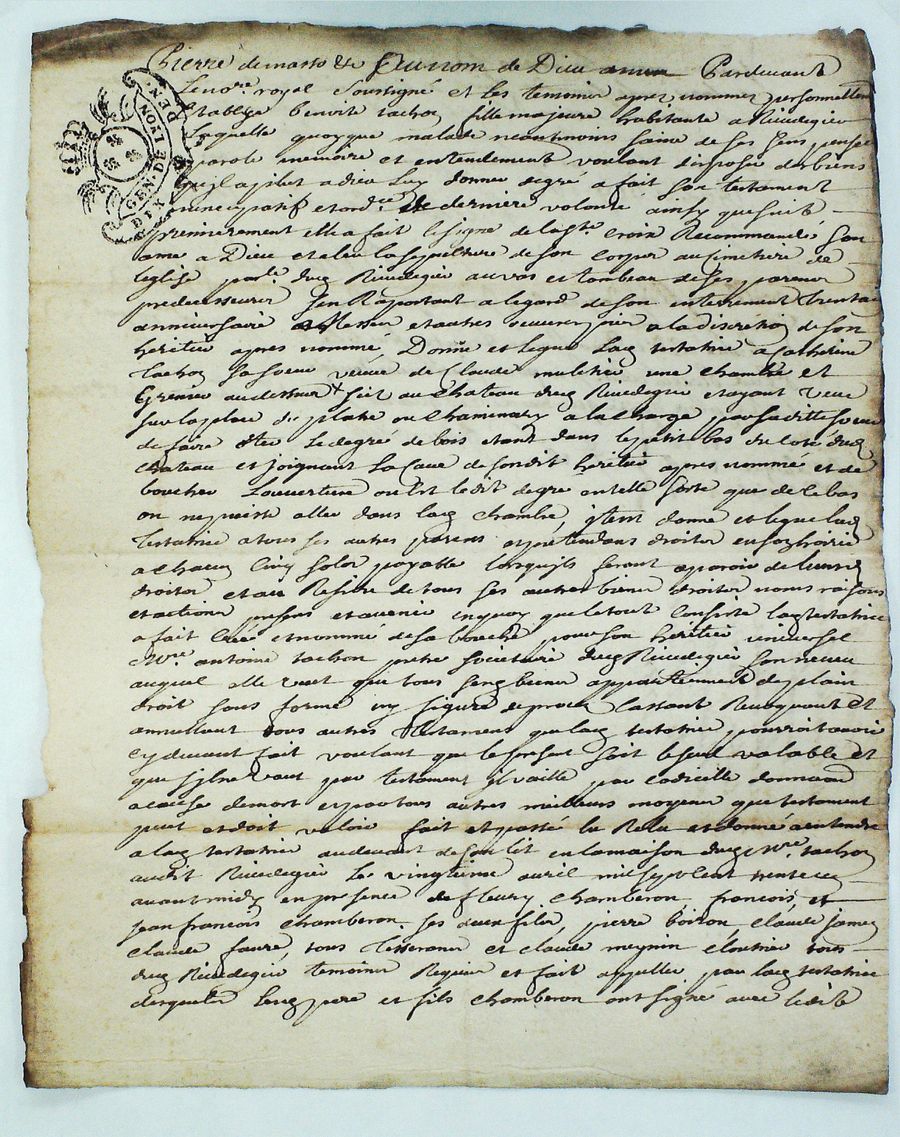 Pierre de masso & Au nom de Dieu amen Pardevant
GEN. DE LYON
DIX DEN.
Le no.re royal Soussigné et les temoins apres nommez personnellem
Etablye benoite tachon fille majeure habitante a Rivedegier
Laquelle quoyque malade neantmoins saine de ses sens, pensee
parole memoire et entendement voulant disposer des biens
qu'il a plut a dieu Luy donner de gré a fait Son testament
nuncupatif et ord.re de derniere volonté ainsy que suit
premierement elle a fait le signe de la S.te Croix Recommandé son
ame a Dieu et a elu la sepulture de son Corps au Cimetiere de
leglise par.le dud Rivedegier au vas et tombeau de ses parens
predecesseurs S'en Raportant a legard de son enterrement trentai
anniversaire Messes et autres oeuvres pies a la discretion de son
heritier apres nommé, Donne et legue Lad testatrice a Catherine
tachon sa soeur veuve de Claude une chambre et
Grenier au dessus + sçit au Chateau dud Rivedegier et ayant veüe
sur la place du platre ou Chammary a la charge par sa ditte soeur
de faire oter Le degré de bois etant dans le petit bas du Coté dud
Chateau et joignant La Cave de sondit heritier apres nommé et de
boucher Louverture ou Est ledit degré en telle sorte que de le bas
on ne puisse aller dans lad chambre, jtem donne et legue lad
testatrice a tous ses autres parens et pretendans droits en son hoirie
a chacun Cinq solds payable lorsquils seront aparoir de leursd
droits et au Residu de tous ses autres biens droits noms raisons
et actions presens et avenir en quoy que le tout Consiste lad testatrice
a fait Créé et nommé de sa bouche pour son heritier universel
M.re antoine tachon pretre societaire dud Rivedegier son neveu
auquel elle veut que tous sesd biens appartiennent de plain
droit sans forme ny figure de procez Cassant Revoquant et
annullant tous autres testamens que lad testatrice pourroit avoir
cy devant fait voulant que le present soit le seul valable et
que s'il ne vaut par testament il vaille par Codicille donnation
a cause de mort et par tous autres meilleurs moyens que testament
peut et doit valoir fait et passé lu Relu et donné a entendre
a lad testatrice au devant de son lit en la maison dud M.re tachon
audit Rivedegier Le vingtieme avril mil sept cent trente
avant midy en presence de fleury Chamberon françois et
jean françois Chamberon ses deux fils, pierre boiron, Claude james
Claude faure, tous tisserans et Claude meynin Cloutier tous
dud Rivedegier temoins Requis et fait appeller par lad testatrice
desquels Lesd pere et fils Chamberon ont signé avec ledit